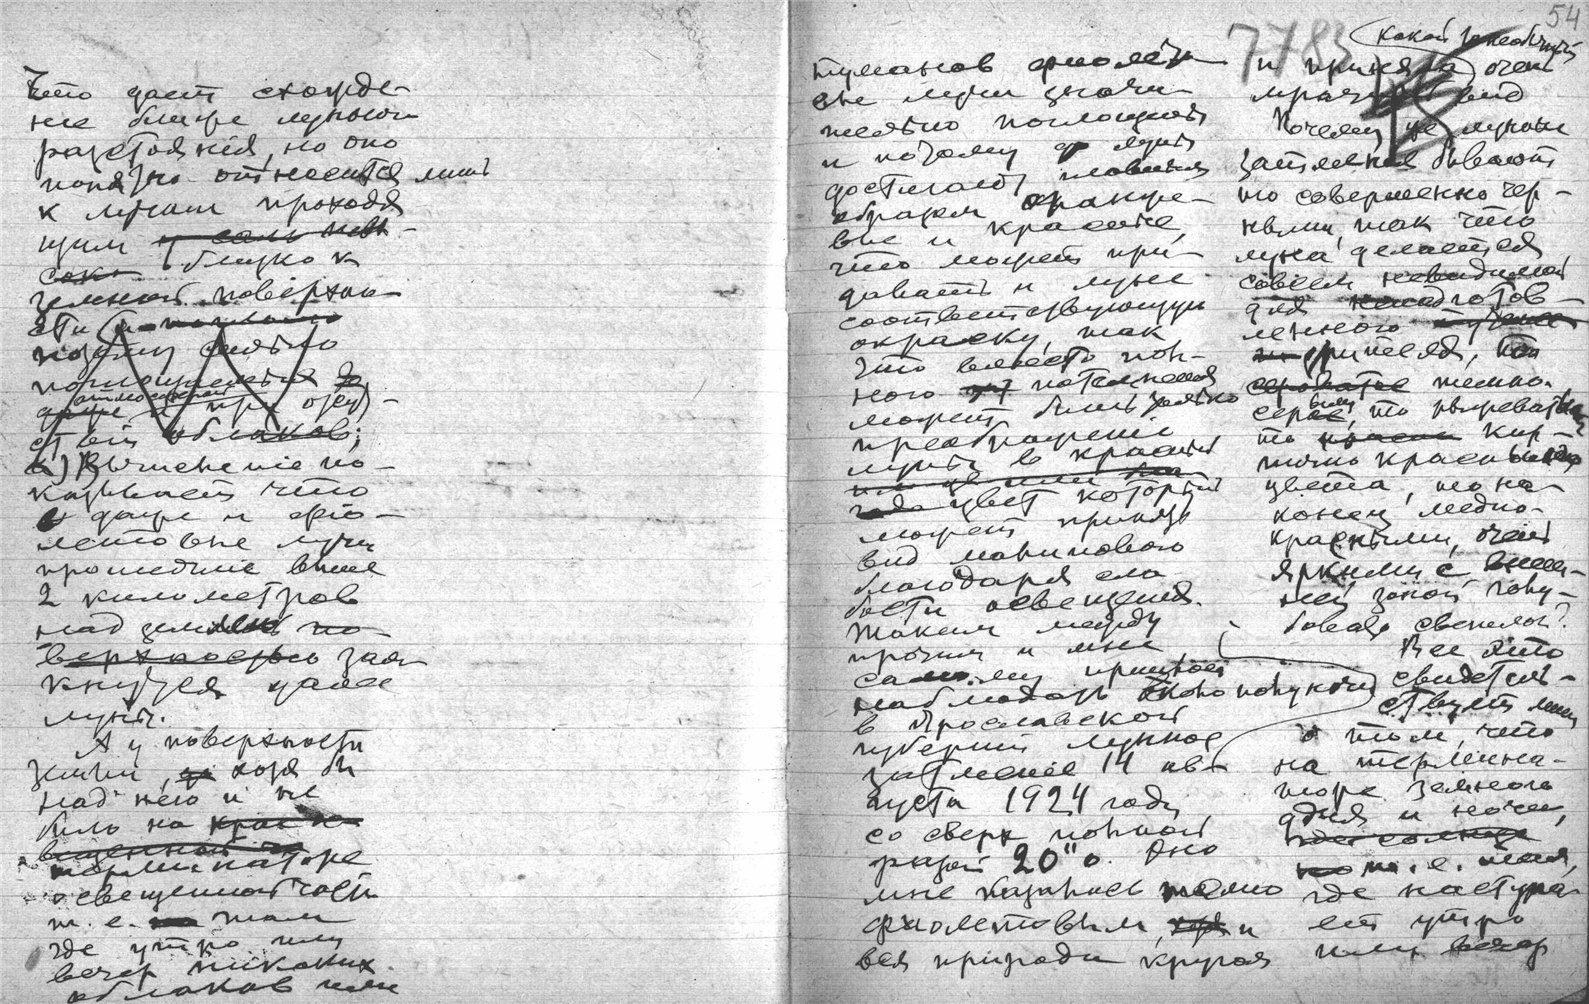 Что дает схожде-
ние ближе лунного
разстоянія, но оно
понятно относится лишь
к лучам проходя
щим
близко к
земной поверхно-
сти
поэтому сильно
поглощаемым
атмосферой
даже и при отсут-
ствіи облаков;
Вычисление по-
казывает что
даже и фіо-
летовые лучи
прошедшие выше
2 километров
над землею по-
верхностью
лучи.
А у поверхности
земли, хотя бы
над нею и не
было на
терминаторе
освещенной части
т. е. там
где утро или
вечер никаких
облаков или
туманов фиолето-
вые лучи значи-
тельно поглощены
и потому до луны
достигают главным
образом оранже-
вые и красные,
что может при-
давать и луне
соответствующую
окраску, так
что вместо пол-
ного потемнения
может быть
преображеніе
луны в красный
цвет который
может принять
вид
благодаря сла-
бости освещения.
Таким между
прочим и мне
самому пришлось
наблюдать около полуночи
в Ярославской
губерніи лунное
затменіе 14 ав-
густа 1924 года
со сверх полной
фазой 20" о. Оно
мне казалось темно
фиолетовым, и
вся природа кругом
54
7783
и приняла очень
мрачный вид
Почему же лунные
затмения бывают
то совершенно чер-
ными, так что
луна делается
совсем невидимой
для неподготов-
ленного
зрителя, то
темно-
серые, то
то кир-
пично красного
цвета, то на-
конец медно-
красными, очень
яркими с внеш-
ней зоной голу-
боватой
Все это
свидетель-
ствует лишь
о том, что
на термина-
торе земного
дня и ночи,
т. е. там,
где наступа-
ет утро
или вечер